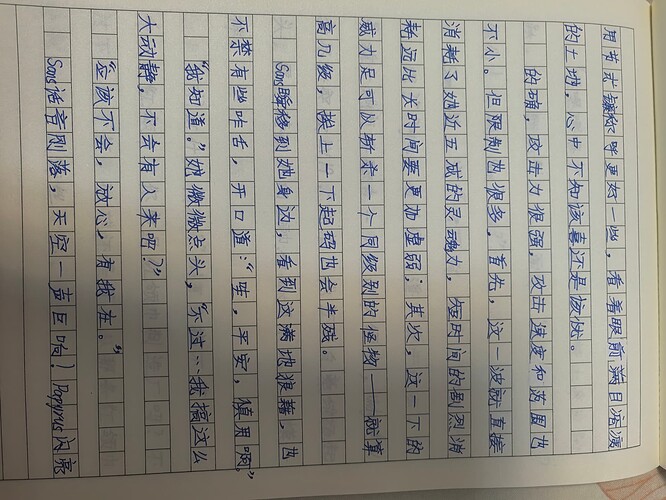 用苦求镶称呼更好一些，看着眼前满目疮痍
的土地，心中不知该喜还是该忧。
的确，攻击力很强，攻击速度和范围也
不小。但限制也很多，首先，这一波就直接
消耗了她近五成的灵魂力，短时间的剧烈消
耗远比长时间要更加虚弱；其次，这一下的
威力足可以斩杀一个同级别的怪物——就算
高几级，挨上一下起码也会半残。
Sans瞬移到她身边，看到这满地狼藉，也
不禁有些咋舌，开口道：“哇，平安，慎用啊。”
“我知道。”她微微点头，“不过…我搞这么
大动静，不会有人来吧？”
“应该不会，放心，有我在。”
Sans话音刚落，天空一声巨响！Papyrus闪亮